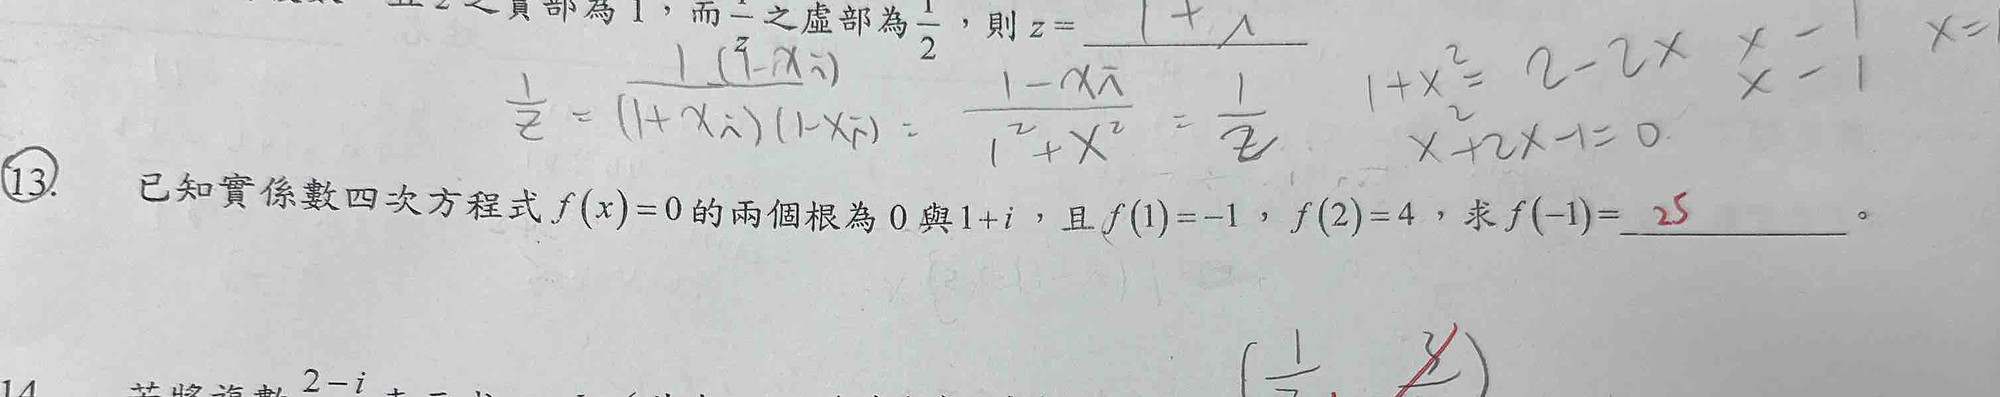 之實部為1，而1/z之虛部為1/2，則z= 1+i
1/z = 1(1-xi)/(1+xi)(1-xi) = 1-xi/1²+x² = 1/z
1+x²=2-2x x-1 x=1
x²+2x-1=0 x-1
13. 已知實係數四次方程式f(x)=0的兩個根為0與1+i，且f(1)=-1，f(2)=4，求f(-1)= 25 。
14 2-i